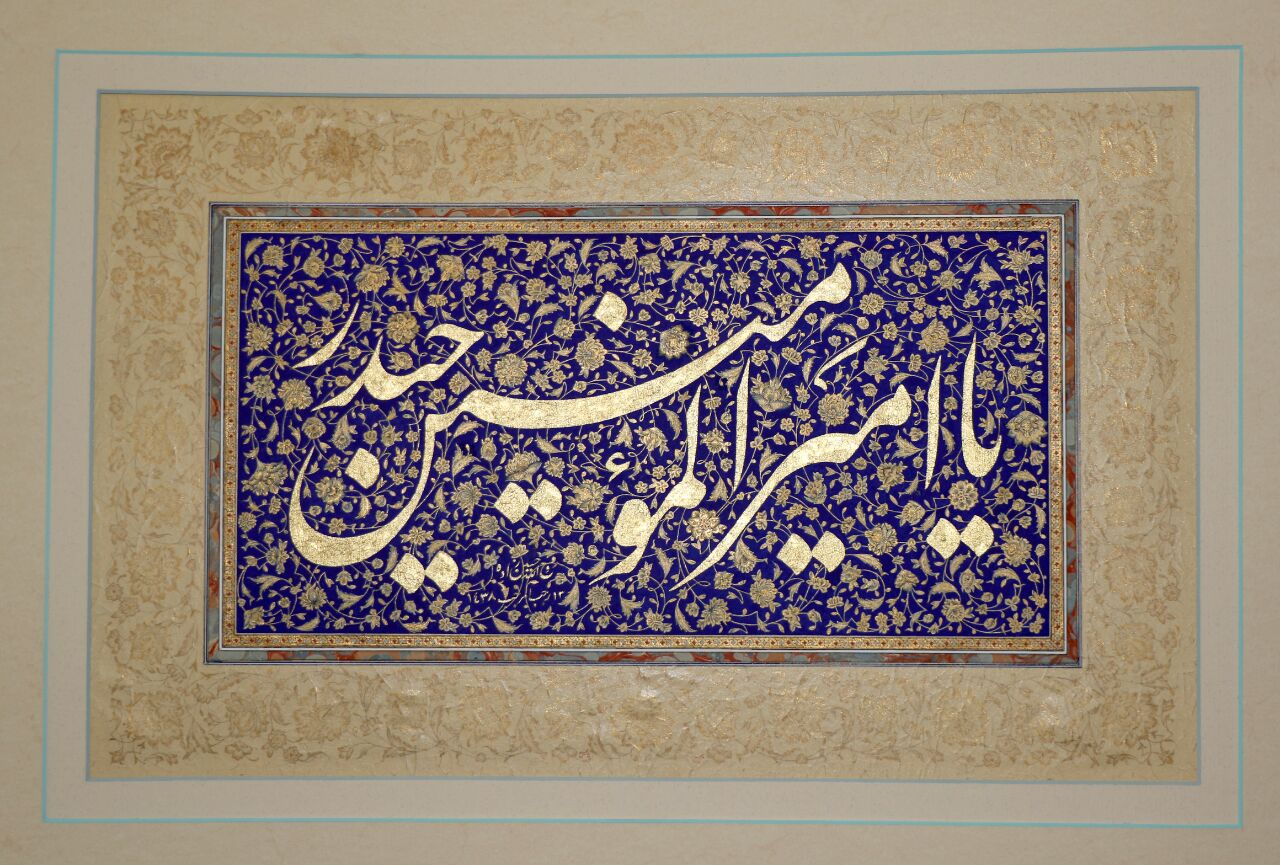 یا امیرالمؤمنین حیدر